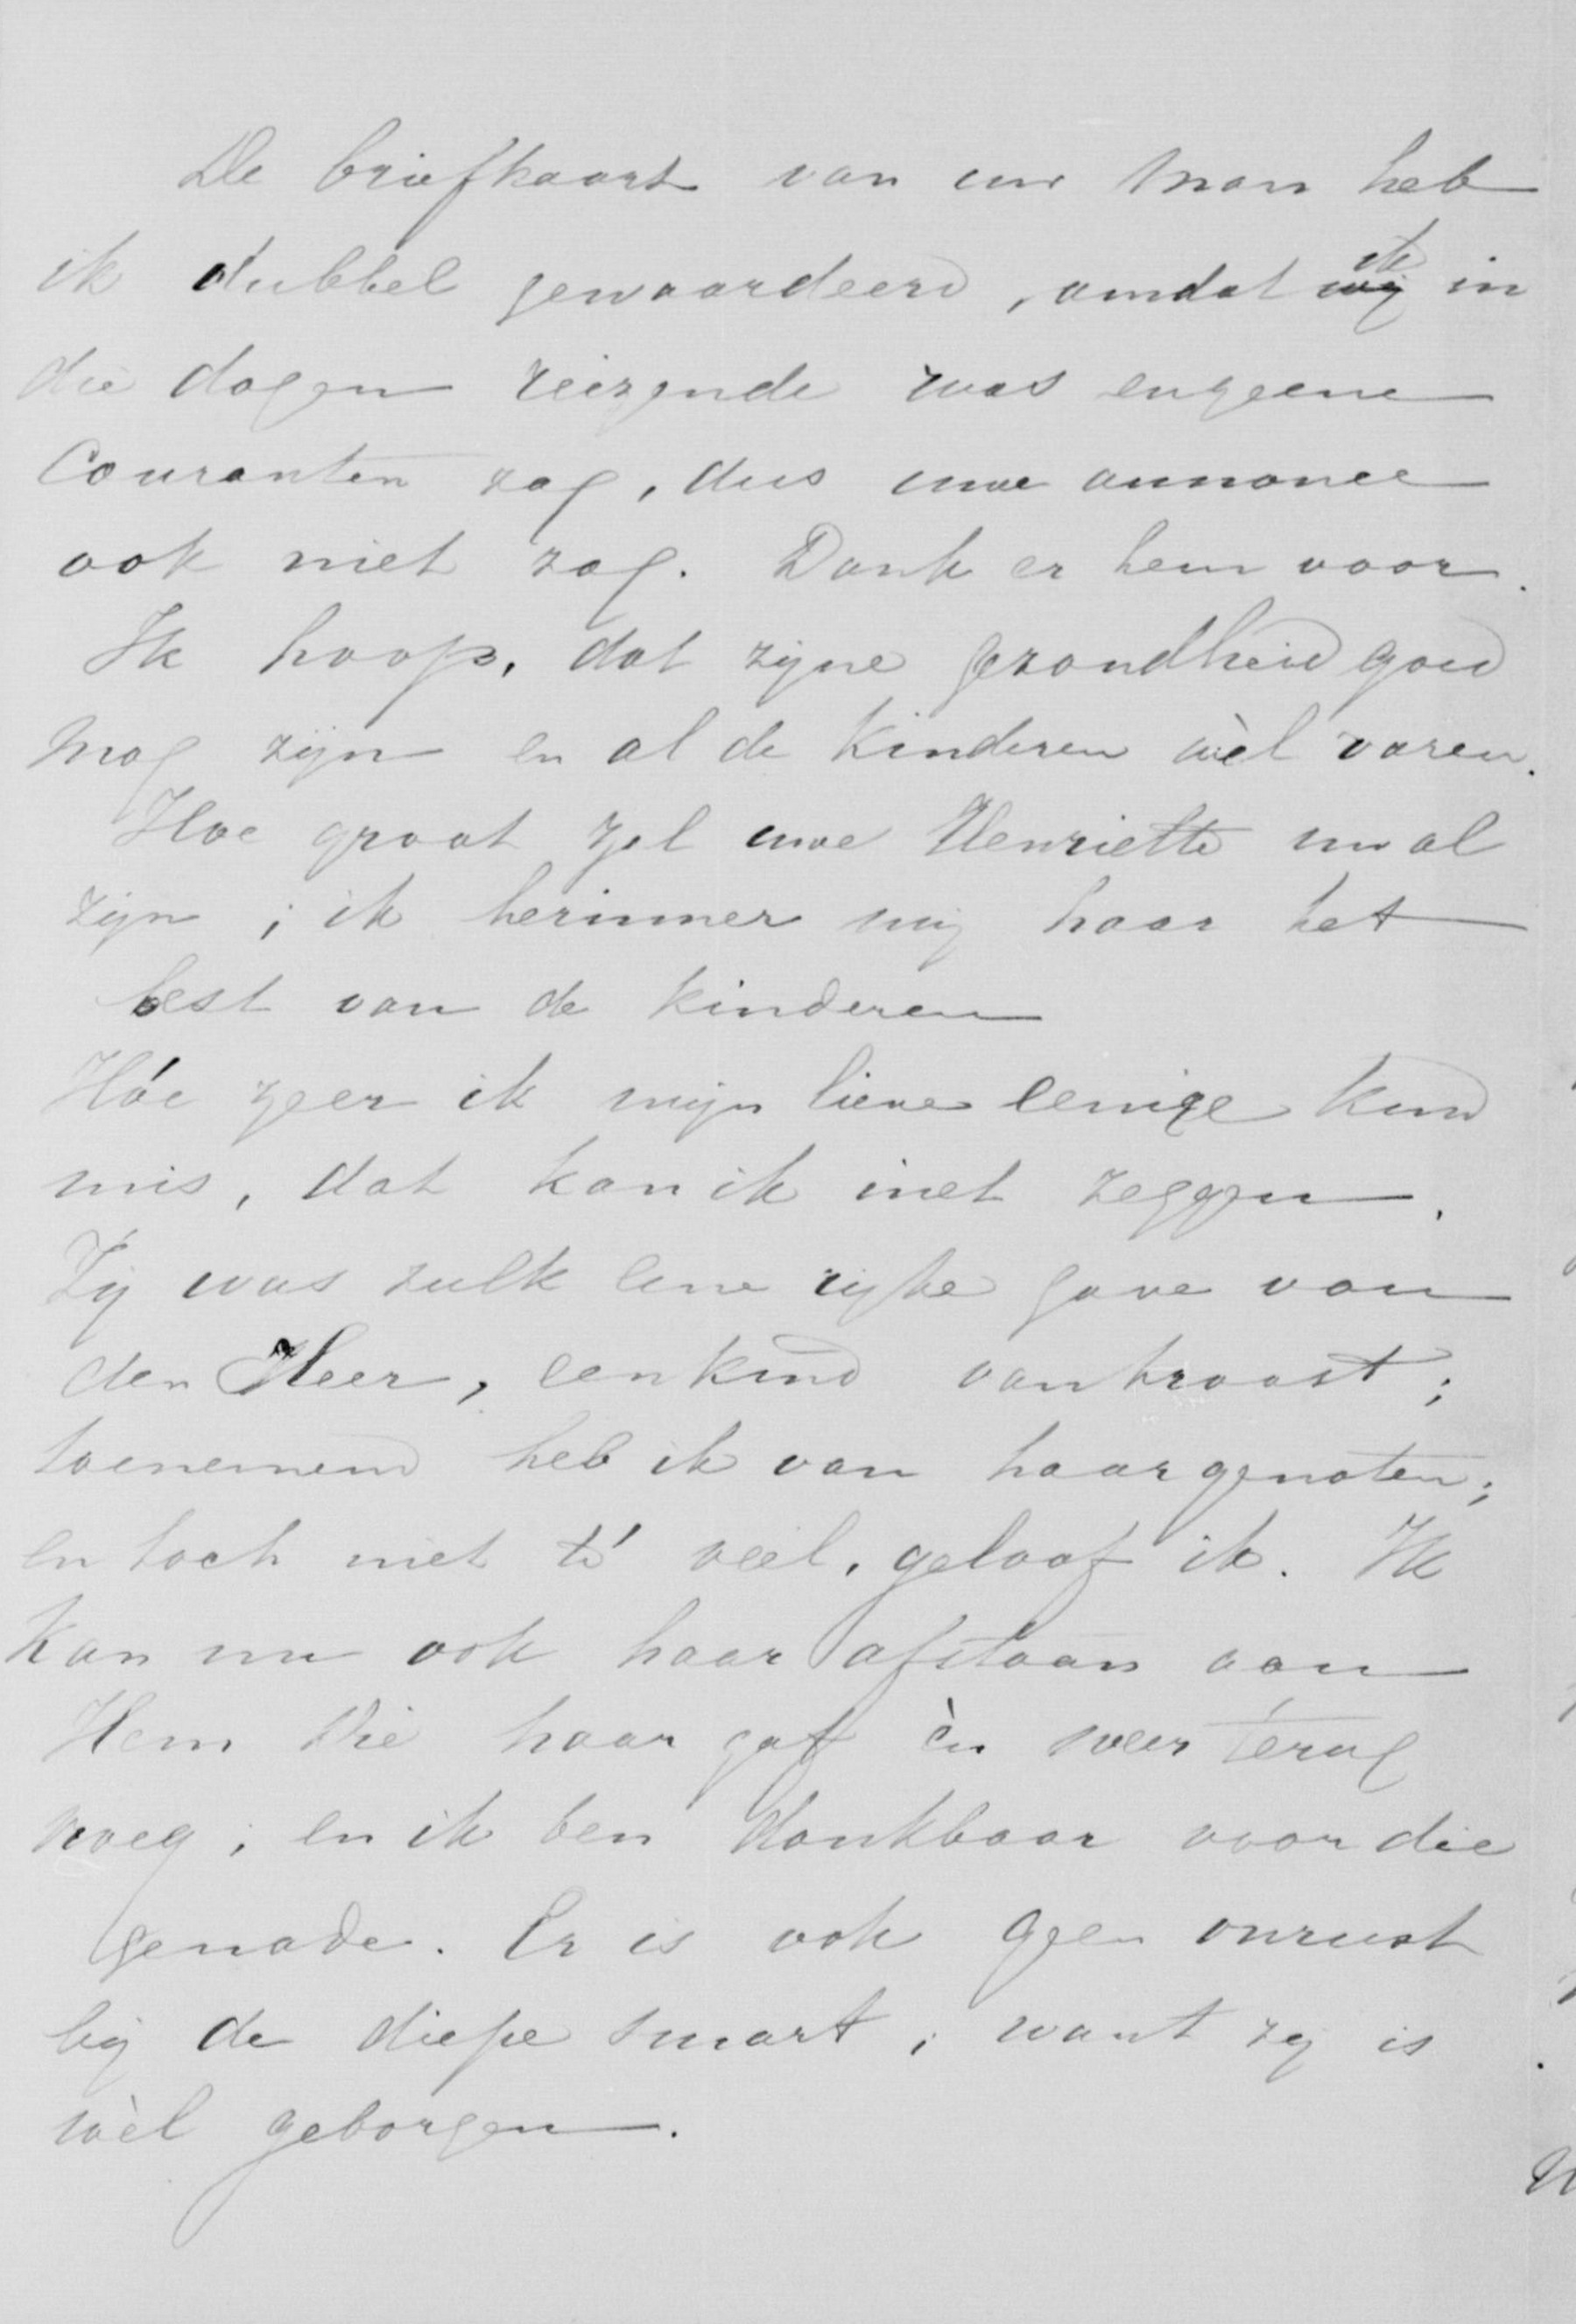 De briefkaart van uw man heb
ik dubbel gewaardeerd, omdat ik in
die dagen reizende was en geene
Couranten zag, dus uwe annonce
ook niet zag. Dank er hem voor.
Ik hoop, dat zijne gezondheid goed
mag zijn en al de Kinderen wèl varen.
Hoe groot zal uwe Henriette nu al
zijn; ik herinner mij haar het
best van de kinderen
Hóe zeer ik mijn lieve eenige kind
mis, dat kan ik niet zeggen.
Zij was zulk eene rijke gave van
den Heer, een kind van troost;
toenemend heb ik van haar genoten;
en toch niet té veel, geloof ik. Ik
Kan nu ook haar afstaan aan
Hem Die haar gaf èn weer terug
noeg; en ik ben dankbaar voor die
genade. Er is ook geen onrust
bij de diepe smart; want zij is
wèl geborgen.